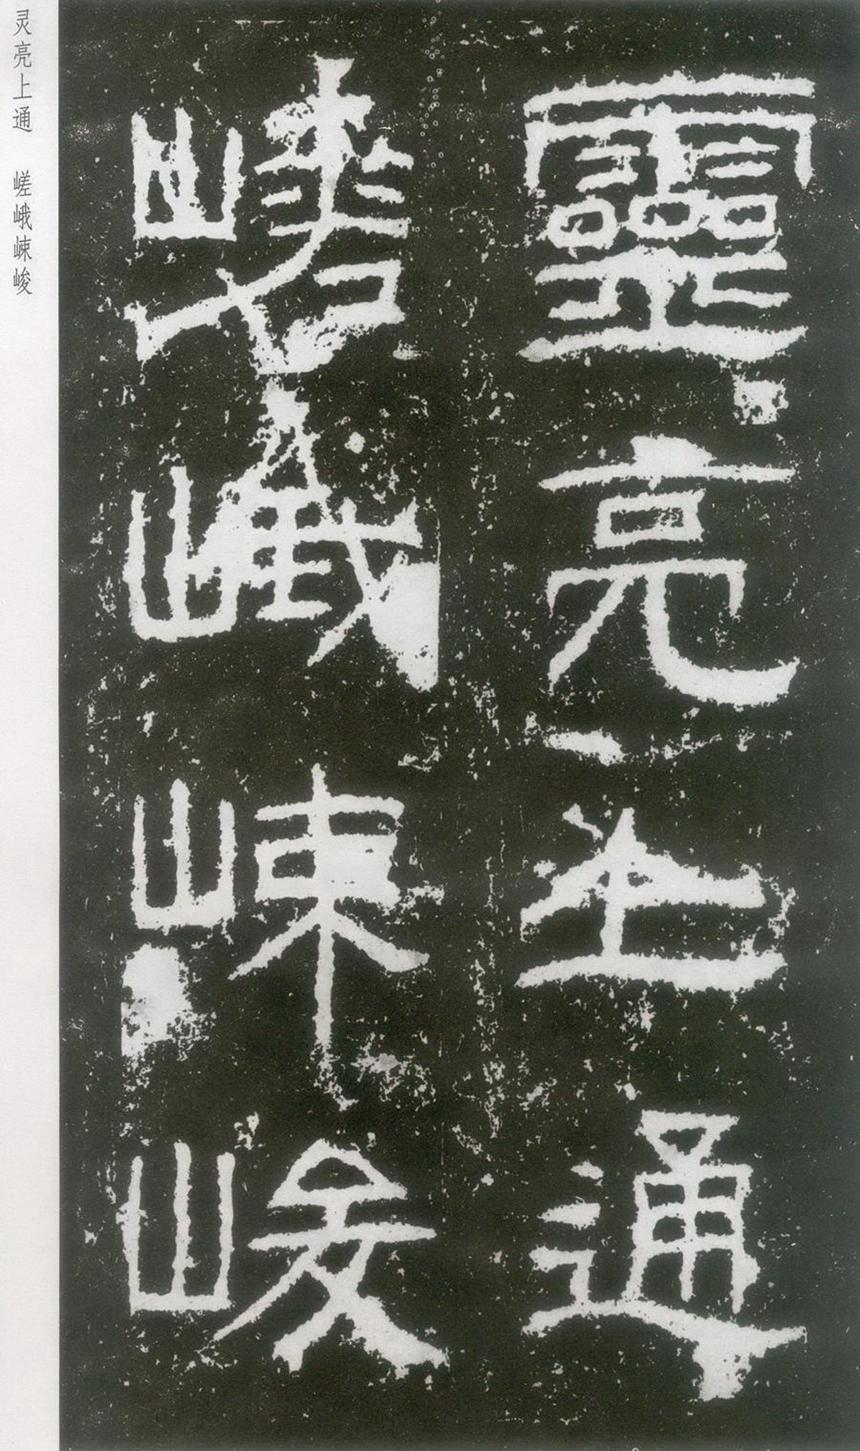 靈亮上通
嵯峨峻
灵亮上通 嵯峨峻